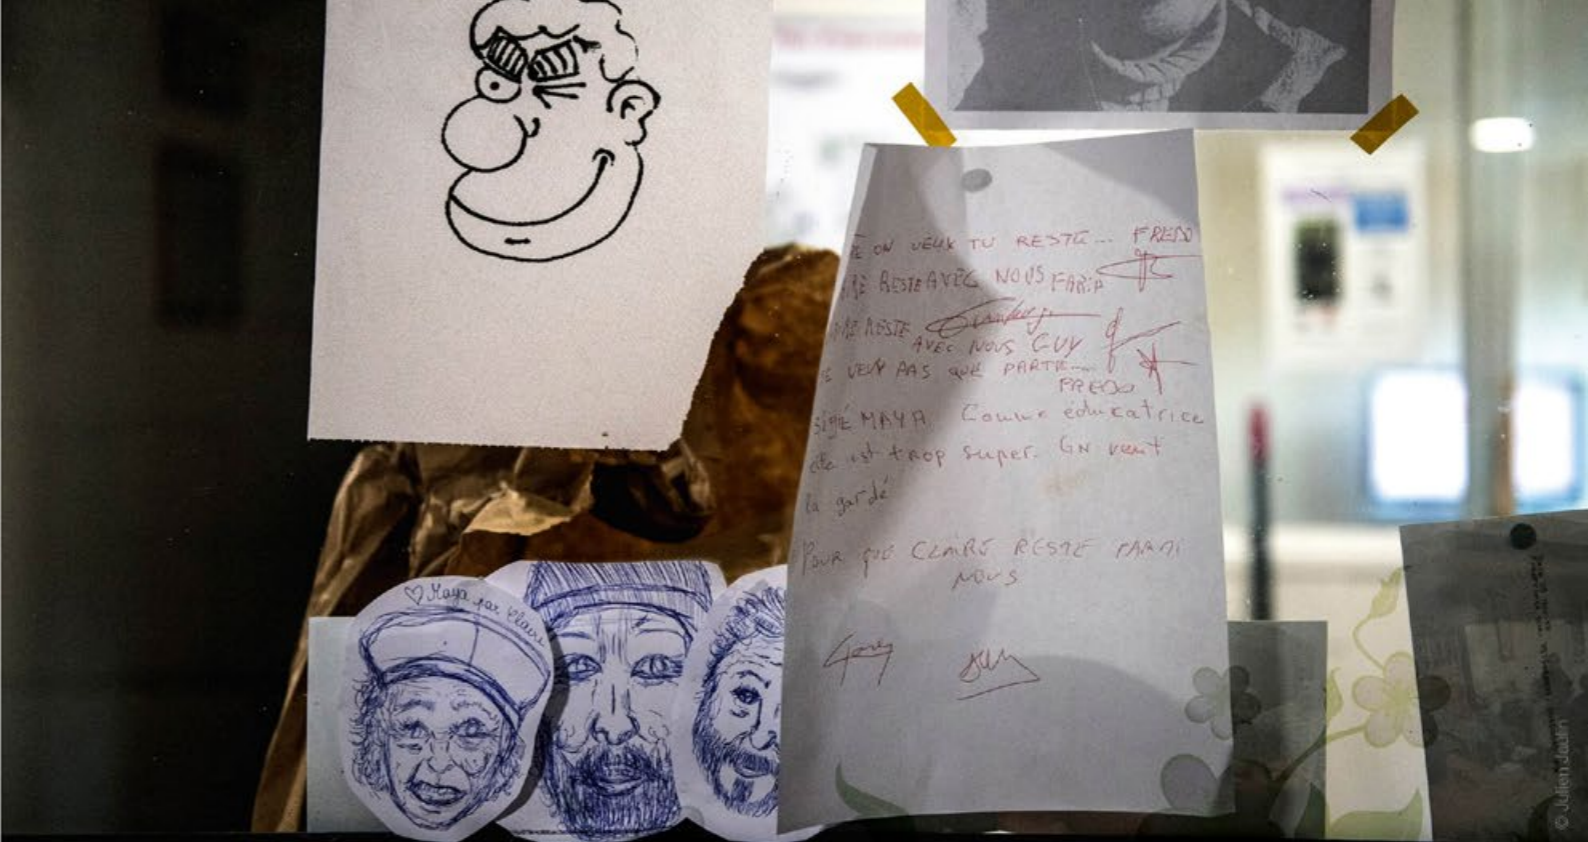 ♡ Maya par Claire
E ON VEUX TU RESTE... FREDO
RE RESTE AVEC NOUS FARIA
RE RESTE
AVEC NOUS GUY
E VEUX PAS QUE PARTE....
FREDO
MAYA Comme éducatrice
elle est trop super. On veut
la gardé
POUR QUE CLAIRE RESTE PARMI
NOUS
© Julien Jaulin